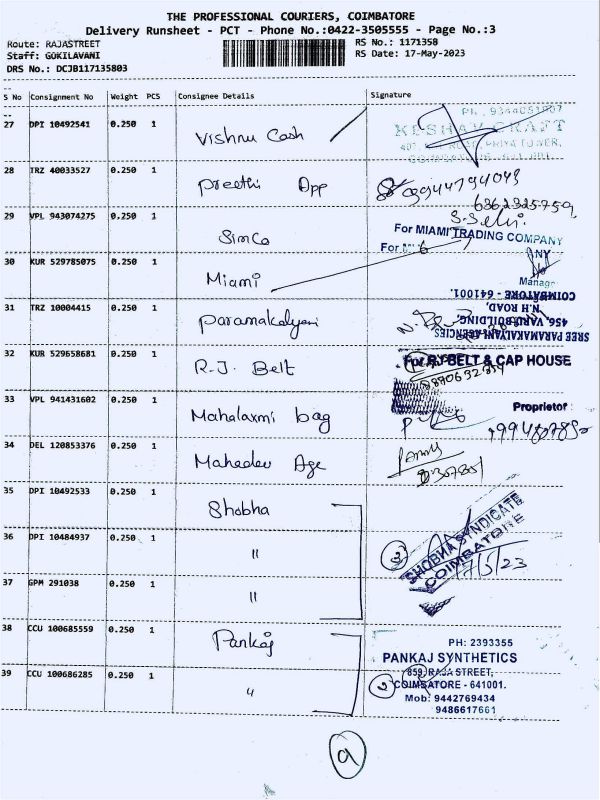 THE PROFESSIONAL COURIERS, COIMBATORE
Delivery Runsheet - PCT - Phone No.:0422-3505555 - Page No.:3
Route: RAJASTREET
Staff: GOKILAVANI
DRS No.: DCJB117135803
RS No.: 1171358
RS Date: 17-May-2023
S No Consignment No Weight PCS Consignee Details Signature
27 DPI 10492541 0.250 1 Vishnu Cash
Ph. 9344051007
KESHAV CRAFT
28 TRZ 40033527 0.250 1 Preethi App
29 VPL 943074275 0.250 1 Simco
For MIAMI TRADING COMPANY
30 KUR 529785075 0.250 1 Miami
31 TRZ 10004415 0.250 1 Paramakalyani
SREE PARAMAKALYANI AGENCIES
456, VARU BUILDING,
N.H ROAD,
COIMBATORE - 641001.
32 KUR 529658681 0.250 1 R.J. Belt
For RJ BELT & CAP HOUSE
33 VPL 941431602 0.250 1 Mahalaxmi bag
Proprietor
34 DEL 120853376 0.250 1 Mahadev Age
35 DPI 10492533 0.250 1 Shobha
36 DPI 10484937 0.250 1 "
3
SHOBHA SYNDICATE
COIMBATORE
17/5/23
37 GPM 291038 0.250 1 "
38 CCU 100685559 0.250 1 Pankaj
PH: 2393355
PANKAJ SYNTHETICS
859, RAJA STREET,
39 CCU 100686285 0.250 1 "
2
COIMBATORE - 641001.
Mob: 9442769434
9486617661
9